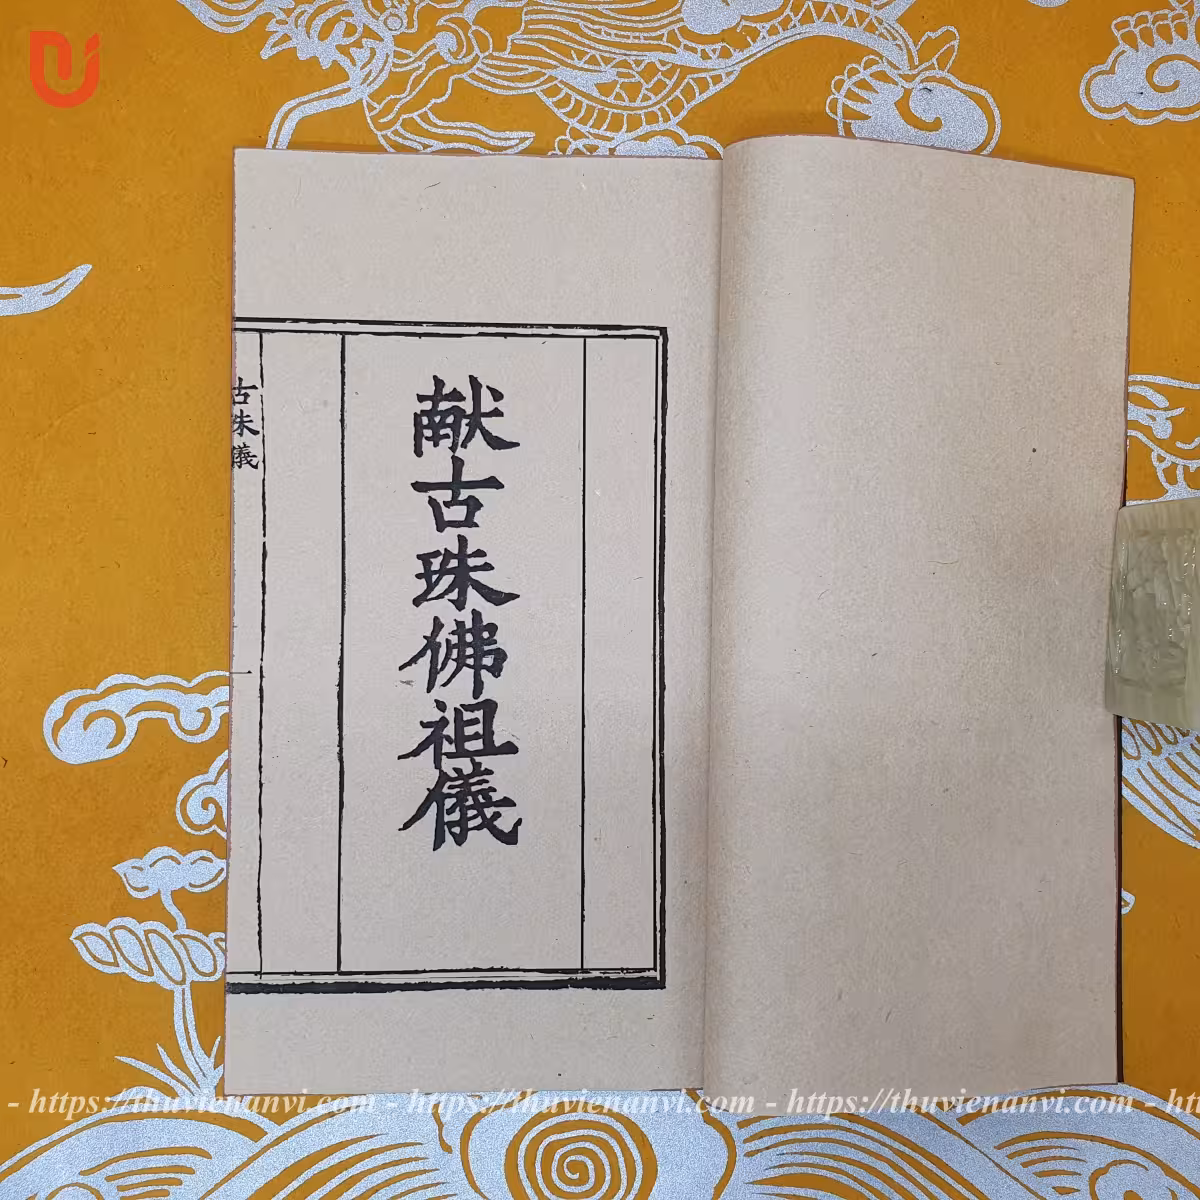 献古珠佛祖儀
古珠儀
- https://thuvienanvi.com - https://thuvienanvi.com - https://thuvienanvi.com - ht